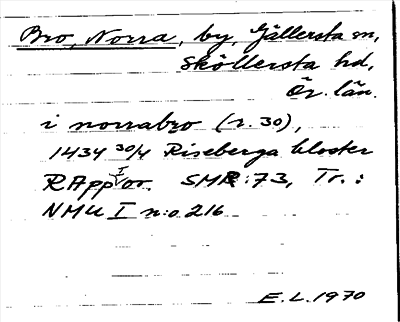 Bro, Norra, by, Gällersta sn,
Sköllersta hd,
Ör. län.
i norrabro (r. 30),
1434 30/4 Riseberga kloster
RApp I or. SMR: 73, Tr.:
NMU I n:o 216
E.L. 1970